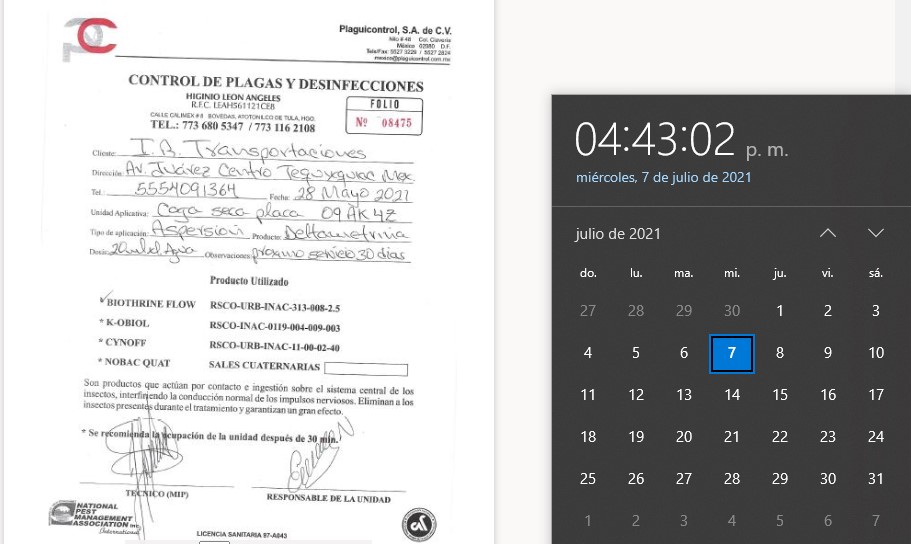 Plaguicontrol, S.A. de C.V.
Nilo # 48 Col. Clavería
México 02080 D.F.
Tels/Fax: 5527 3229 / 5527 2824
CONTROL DE PLAGAS Y DESINFECCIONES
HIGINIO LEON ANGELES
R.F.C. LEAH561121CE8
CALLE CALIMEX # 8 BOVEDAS, ATOTONILCO DE TULA, HGO.
TEL.: 773 680 5347 / 773 116 2108
FOLIO
Nº 08475
Cliente: I.B. Transportaciones
Dirección: Av. Juárez Centro Tequixquiac Mex.
Tel.: 5554091364 Fecha: 28 Mayo 2021
Unidad Aplicativa: Caga seca placa 09 AK 4Z
Tipo de aplicación: Aspersion Producto: Deltametrina
Dosis: 20ml Agua Observaciones: proximo servicio 30 dias
Producto Utilizado
BIOTHRINE FLOW RSCO-URB-INAC-313-008-2.5
* K-OBIOL RSCO-INAC-0119-004-009-003
* CYNOFF RSCO-URB-INAC-11-00-02-40
* NOBAC QUAT SALES CUATERNARIAS
Son productos que actúan por contacto e ingestión sobre el sistema central de los
insectos, interfiriendo la conducción normal de los impulsos nerviosos. Eliminan a los
insectos presentes durante el tratamiento y garantizan un gran efecto.
* Se recomienda la ocupación de la unidad después de 30 min.
TECNICO (MIP) RESPONSABLE DE LA UNIDAD
NATIONAL
PEST
MANAGEMENT
ASSOCIATION INC
International
LICENCIA SANITARIA 97-A043
04:43:02 p. m.
miércoles, 7 de julio de 2021
julio de 2021
do. lu. ma. mi. ju. vi. sá.
27 28 29 30 1 2 3
4 5 6 7 8 9 10
11 12 13 14 15 16 17
18 19 20 21 22 23 24
25 26 27 28 29 30 31
1 2 3 4 5 6 7